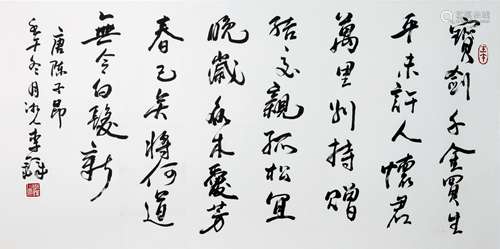 寶劍千金買生
平未許人懷君
萬里别持贈
結交親孤松宜
晚歲衆木愛芳
春已矣將何道
無令白髮新
唐陳子昂
壬午冬月李鐸